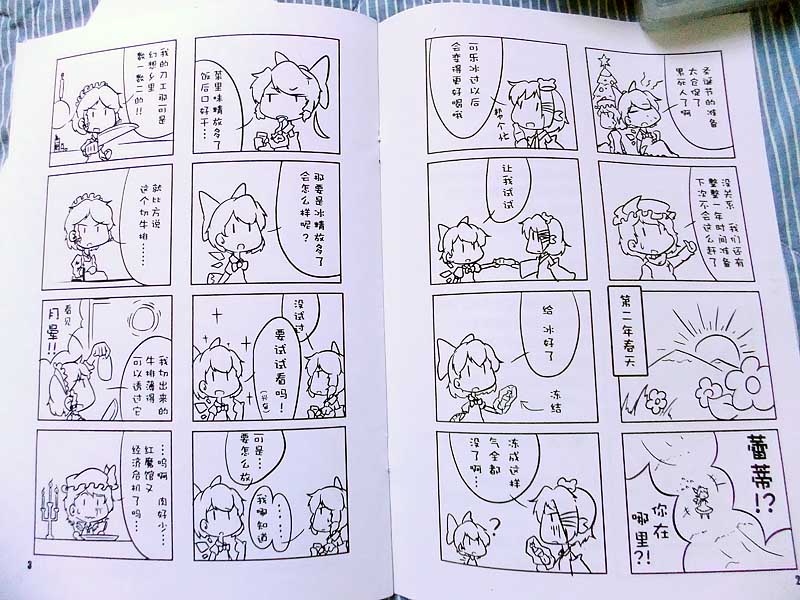 圣诞节的准备
太仓促了
累死人了啊
没关系,我们还有
整整一年时间准备
下次不会这么赶了
第二年春天
蕾蒂!?
你在
哪里?!
可乐冰过以后
会变得更好喝哦
帮个忙
让我试试
给 冰好了
冻结
冻成这样
气全都
没了啊…
?
2
菜里味精放多了
饭后口好干…
那要是冰精放多了
会怎么样呢?
没试过
要试试看吗!
可是…
要怎么放
……
我哪知道
我的刀工那可是
幻想乡里
数一数二的!!
就比方说
这个切牛排……
我切出来的
牛排薄得
可以透过它
看见
月晕!!
…呜啊 肉好少…
红魔馆又
经济危机了吗…
3